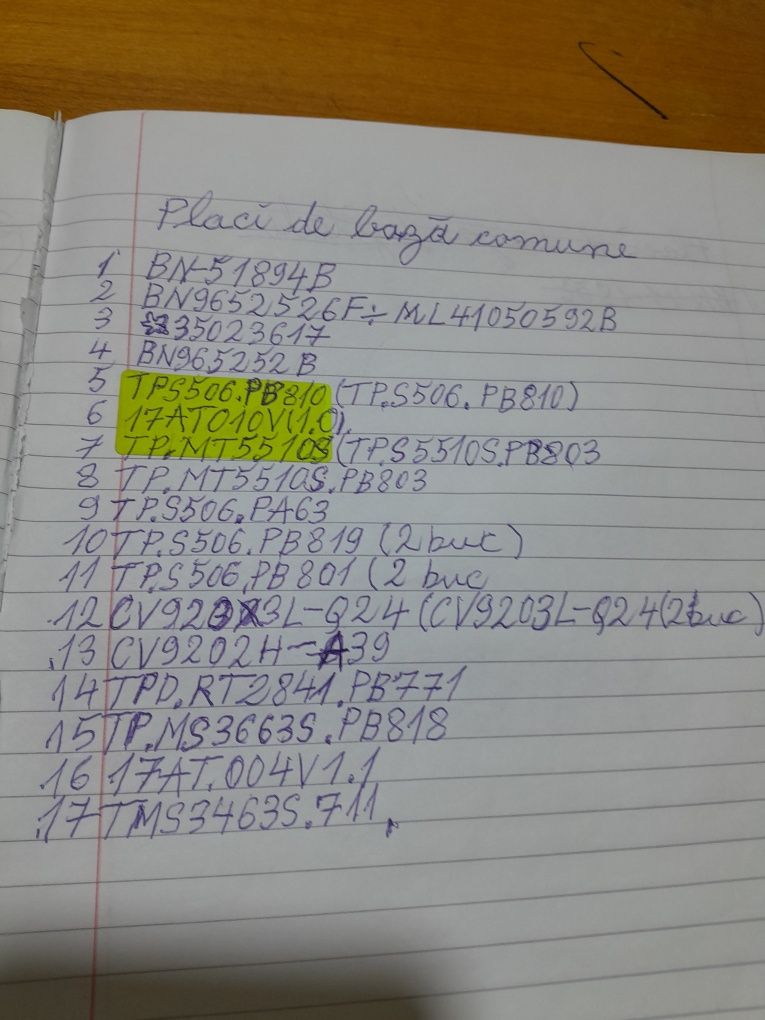 Placi de bază comune
1 BN-51894B
2 BN9652526F÷ML41050592B
3 35023617
4 BN965252B
5 TPS506.PB810 (TP.S506.PB810)
6 17AT010V(1.0)
7 TP.MT5510S (TP.S5510S.PB803
8 TP.MT5510S.PB803
9 TP.S506.PA63
10 TP.S506.PB819 (2 buc)
11 TP.S506.PB801 (2 buc
12 CV9203L-Q24 (CV9203L-Q24(2buc)
13 CV9202H-A39
14 TPD.RT2841.PB771
15 TP.MS3663S.PB818
16 17AT.004V1.1
17 TMS3463S.711.